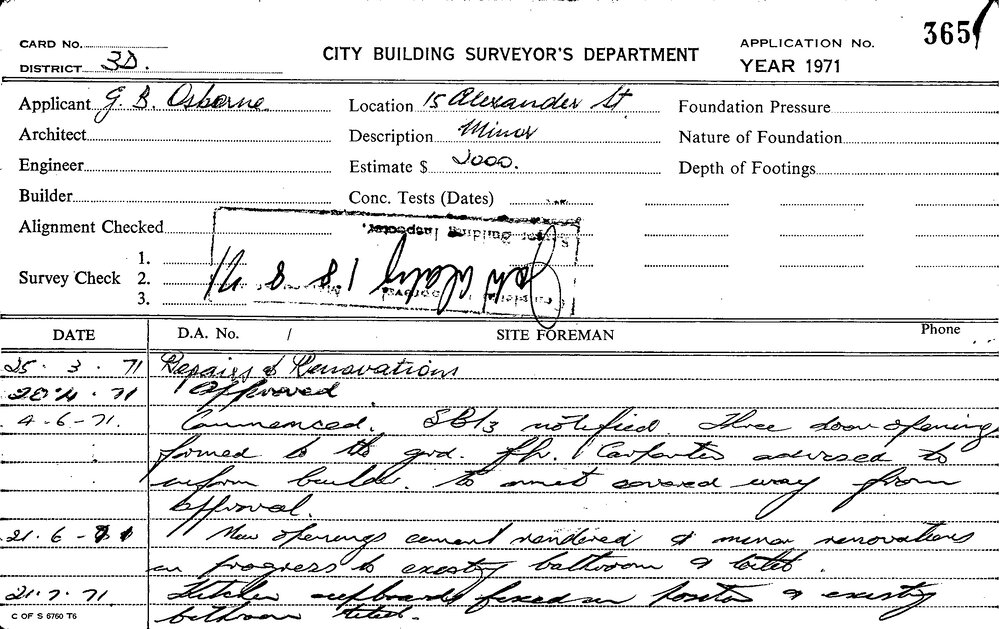 3657
CARD No.
DISTRICT 3D.
CITY BUILDING SURVEYOR'S DEPARTMENT
APPLICATION No.
YEAR 1971
Applicant G. B. Osborne
Location 15 Alexander St
Foundation Pressure
Architect
Description Minor
Nature of Foundation
Engineer
Estimate $ 2000.
Depth of Footings
Builder
Conc. Tests (Dates)
Alignment Checked
Building Inspector.
Survey Check
1.
2.
3.
18 8 71
DATE
D.A. No. /
SITE FOREMAN
Phone
25 . 3 . 71 Repairs & Renovations
71 Approved
4 - 6 - 71. Commenced. SBI3 notified. Three door openings
formed to the grd. flr. Carpenter advised to
inform builder. to omit covered way from
approval.
21 . 6 - 71 New openings cement rendered & minor renovations
in progress to existing bathroom & toilet.
21 . 7 . 71 Kitchen cupboards fixed in position & existing
bathroom tiled.
C OF S 6760 T6